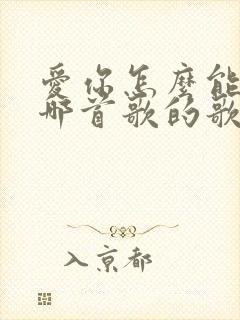 愛你怎麼能
那首歌的歌
入京都